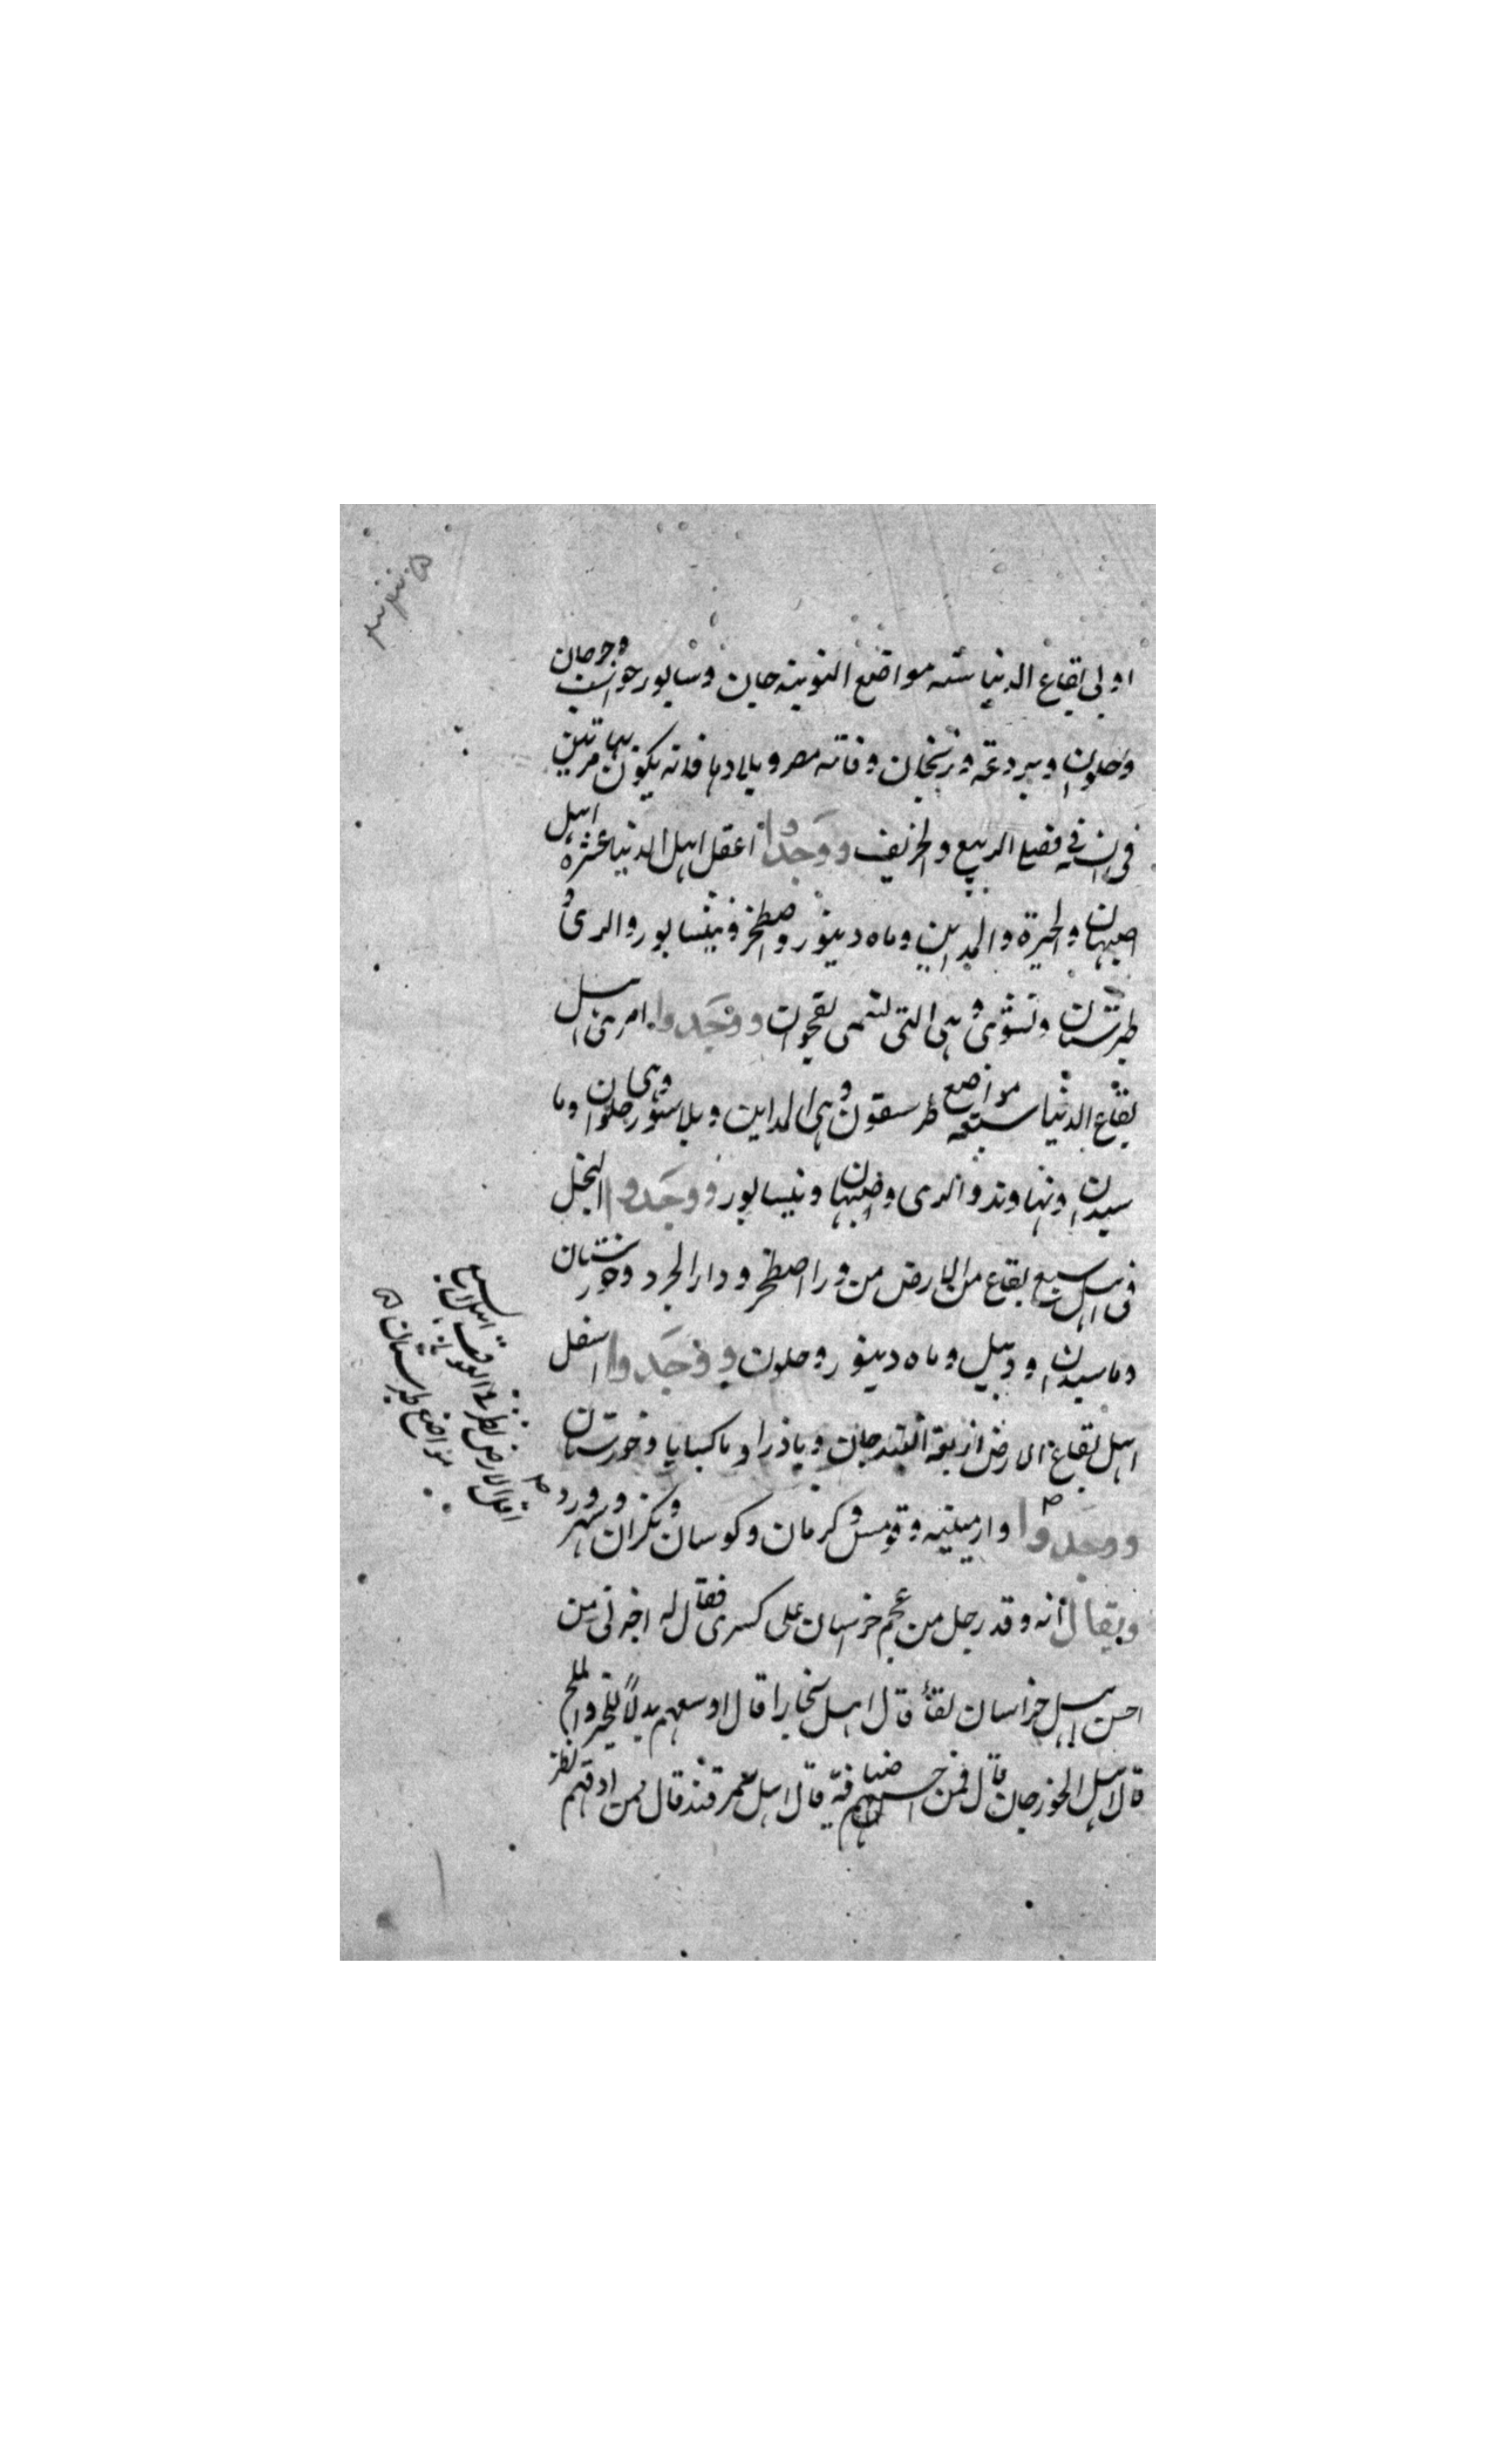 اوبى بقاع الدنيا ستة مواضع النوبندجان وسابور خواست وجرجان
وحلوان وبردعة وزنجان وفاتة مصر وبلادها فانه يكون بها مرتين
فى ان فى فصل الربيع والخريف ووجدوا اعقل اهل الدنيا عشرة اهل
اصبهان والحيرة والمداين وماه دينور واصطخر ونيسابور والرى و
طبرستان ونشوى وهى التى تسمى نقجوان ووجدوا امرى اهل
بقاع الدنيا سبعة مواضع طرسفون وهى المداين وبلاشور وهى حلوان وما
سبدان ونهاوند والرى واصبهان ونيسابور ووجدوا البخل
فى اهل سبع بقاع من الارض مرو واصطخر ودارابجرد وخوزستان
وماسبدان ودبيل وماه دينور وحلوان ووجدوا اسفل
اهل بقاع الارض اربعة البندجان وبادرايا وباكسايا وخوزستان
ووجدوا وارمينيه وقومس وكرمان وكوسان ومكران وشهرزور
ويقال انه وفد رجل من عجم خراسان على كسرى فقال له اخبرنى من
احسن اهل خراسان لقاء قال اهل بخارا قال اوسعهم بدلا للخبز والملح
قال اهل الجوزجان قال فمن احسنهم ضيافة قال اهل سمرقند قال فمن ادقهم نظرا
اقل الارض نظرا فى العواقب اهل سبع
مواضع طبرستان